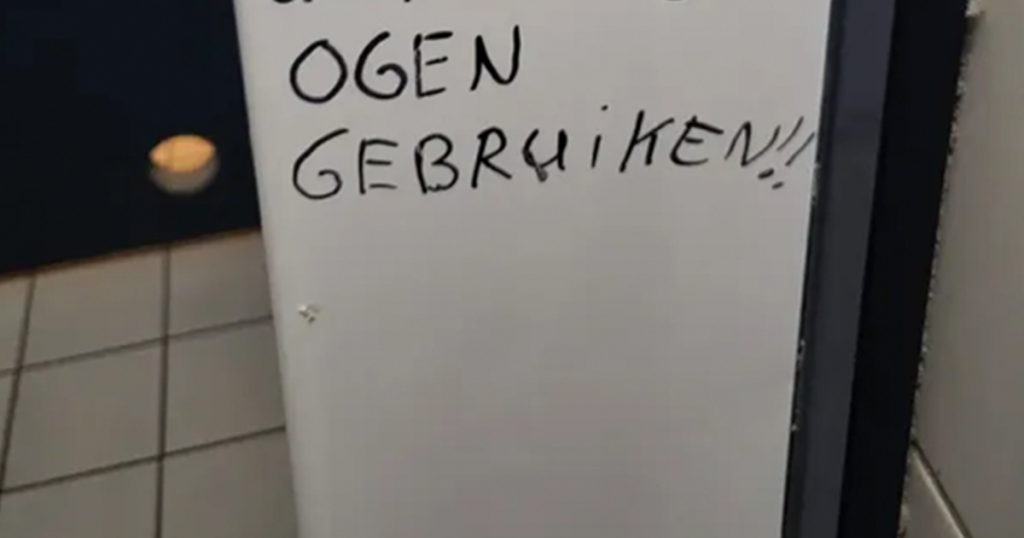 OGEN
GEBRUiKEN!!